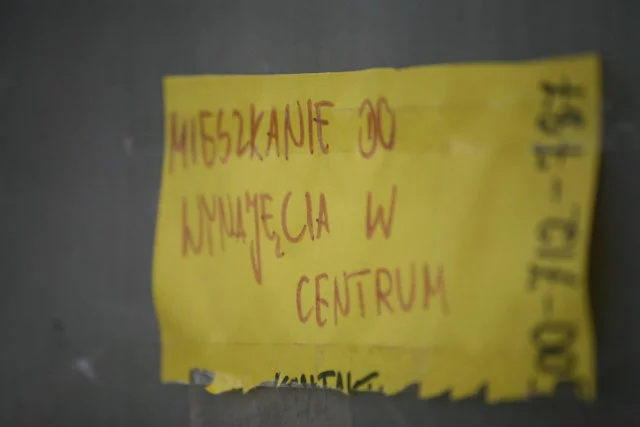 MIESZKANIE DO
WYNAJĘCIA W
CENTRUM
KONTAKT:
500-712-787